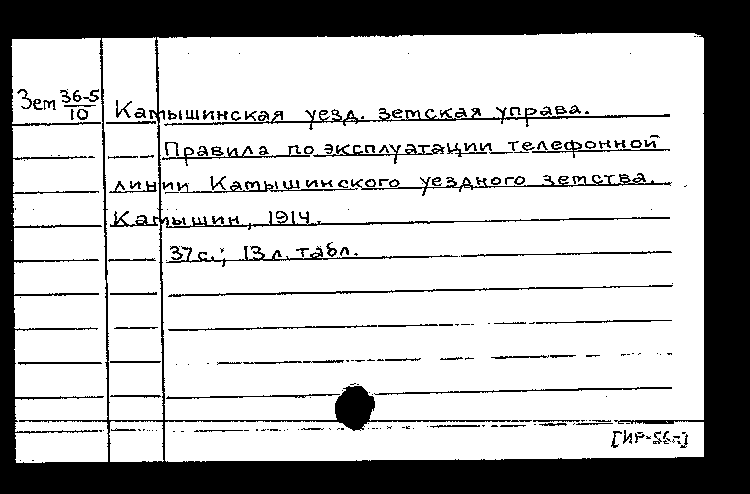 Зем 36-5/10 Камышинская уезд. земская управа.
Правила по эксплуатации телефонной
линии Камышинского уездного земства.
Камышин, 1914.
37 с.; 13 л. табл.